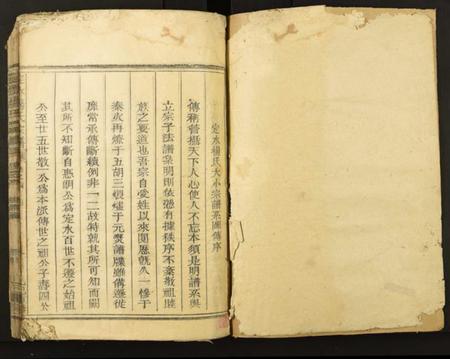 定水楊氏大小宗譜系圖傳序
傳稱管攝天下人心使人不忘本須是明譜系與
立宗子法譜系明則依憑有據秩序不紊敬祖睦
族之要道也吾宗自受姓以來閱歷旣久一慘于
秦火再燎于五胡三燬于元燹譜牒難備遷徙
靡常承傳斷續例非一二故特就其所可知而闕
其所不知斷自惠明公爲定水百世不遷之始祖
公至廿五世敬一公爲本派傳世之祖公子壽四公